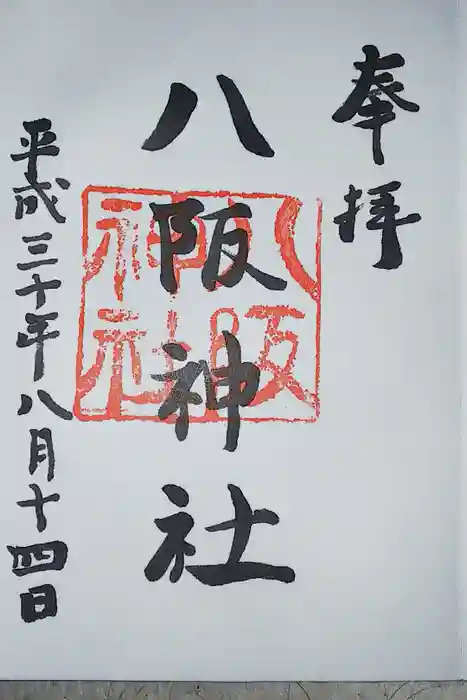 奉拝
八阪神社
八阪神社
平成三十年八月十四日